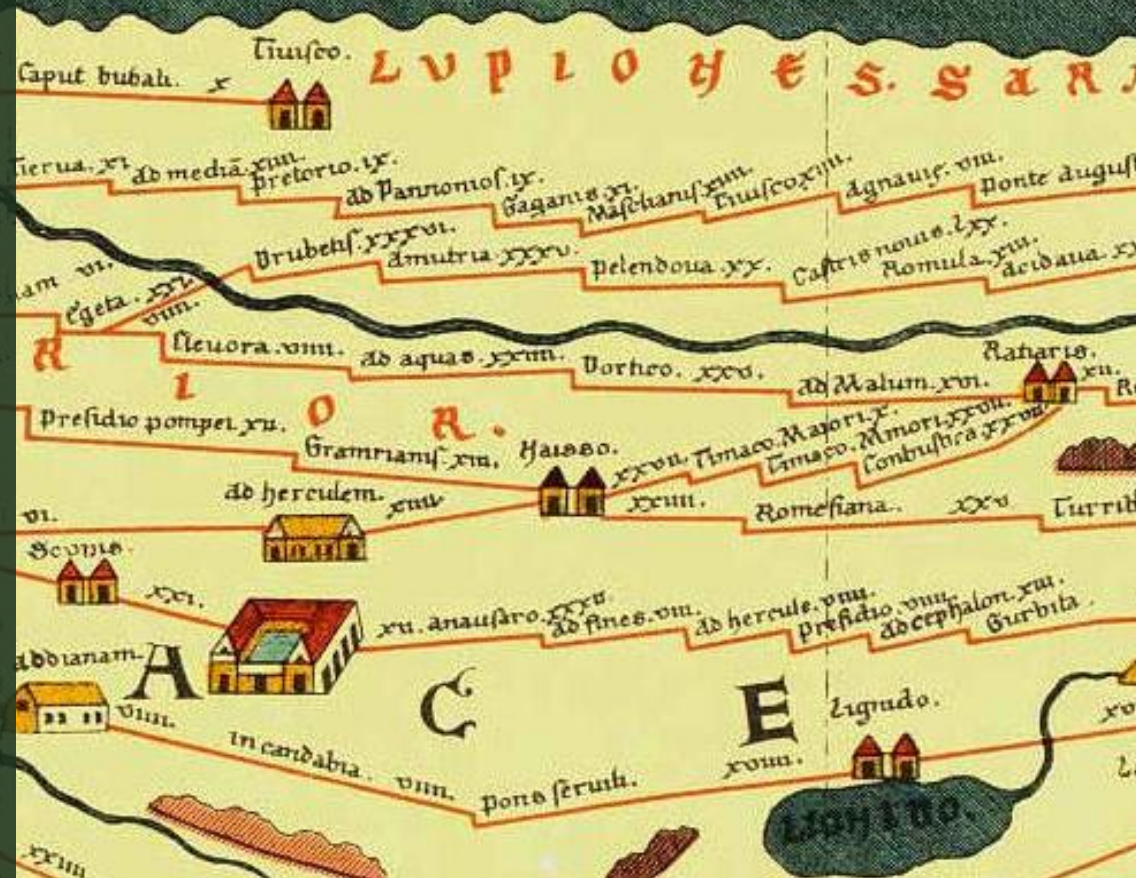 Tiuisco.
LUPIONES. SARM
Caput bubali. x
Tierua. xi
ad mediã. xiiii.
pretorio. ix.
ad Pannonios. ix.
Gaganis. xi.
Masclianis. xiiii.
Tiuisco xiiii.
Agnauie. viiii.
ponte augusti
Drubetis. xxxvi.
Amutria. xxxv.
pelendoua. xx.
Castris nouis. lxx.
Romula. xiii.
Acidaua. xx
nam vi.
Egeta. xxi.
viiii.
Cleuora. viiii.
ad aquas. xxiiii.
Dortico. xxv.
ad Malum. xvi.
Ratiaris.
xii.
R I O R.
presidio pompei. xii.
Gramrianis. xiii.
Naisso.
xxvii.
Timaco. Maiori. x.
Timaco. Minori. xxvii.
Conbustica. xxvii.
vi.
ad herculem.
xiiii.
xxiiii.
Romesiana.
xxv
Turrib
Scopis.
xxi.
xii. anausaro. xxxv.
ad fines. viii.
ad hercule. viiii.
presidio. viiii.
ad cephalon. xiii.
Gurbita
addianam.
A C E
viiii.
in candabia. viiii.
pons seruili.
xviiii.
Lignido.
xv
xxiiii